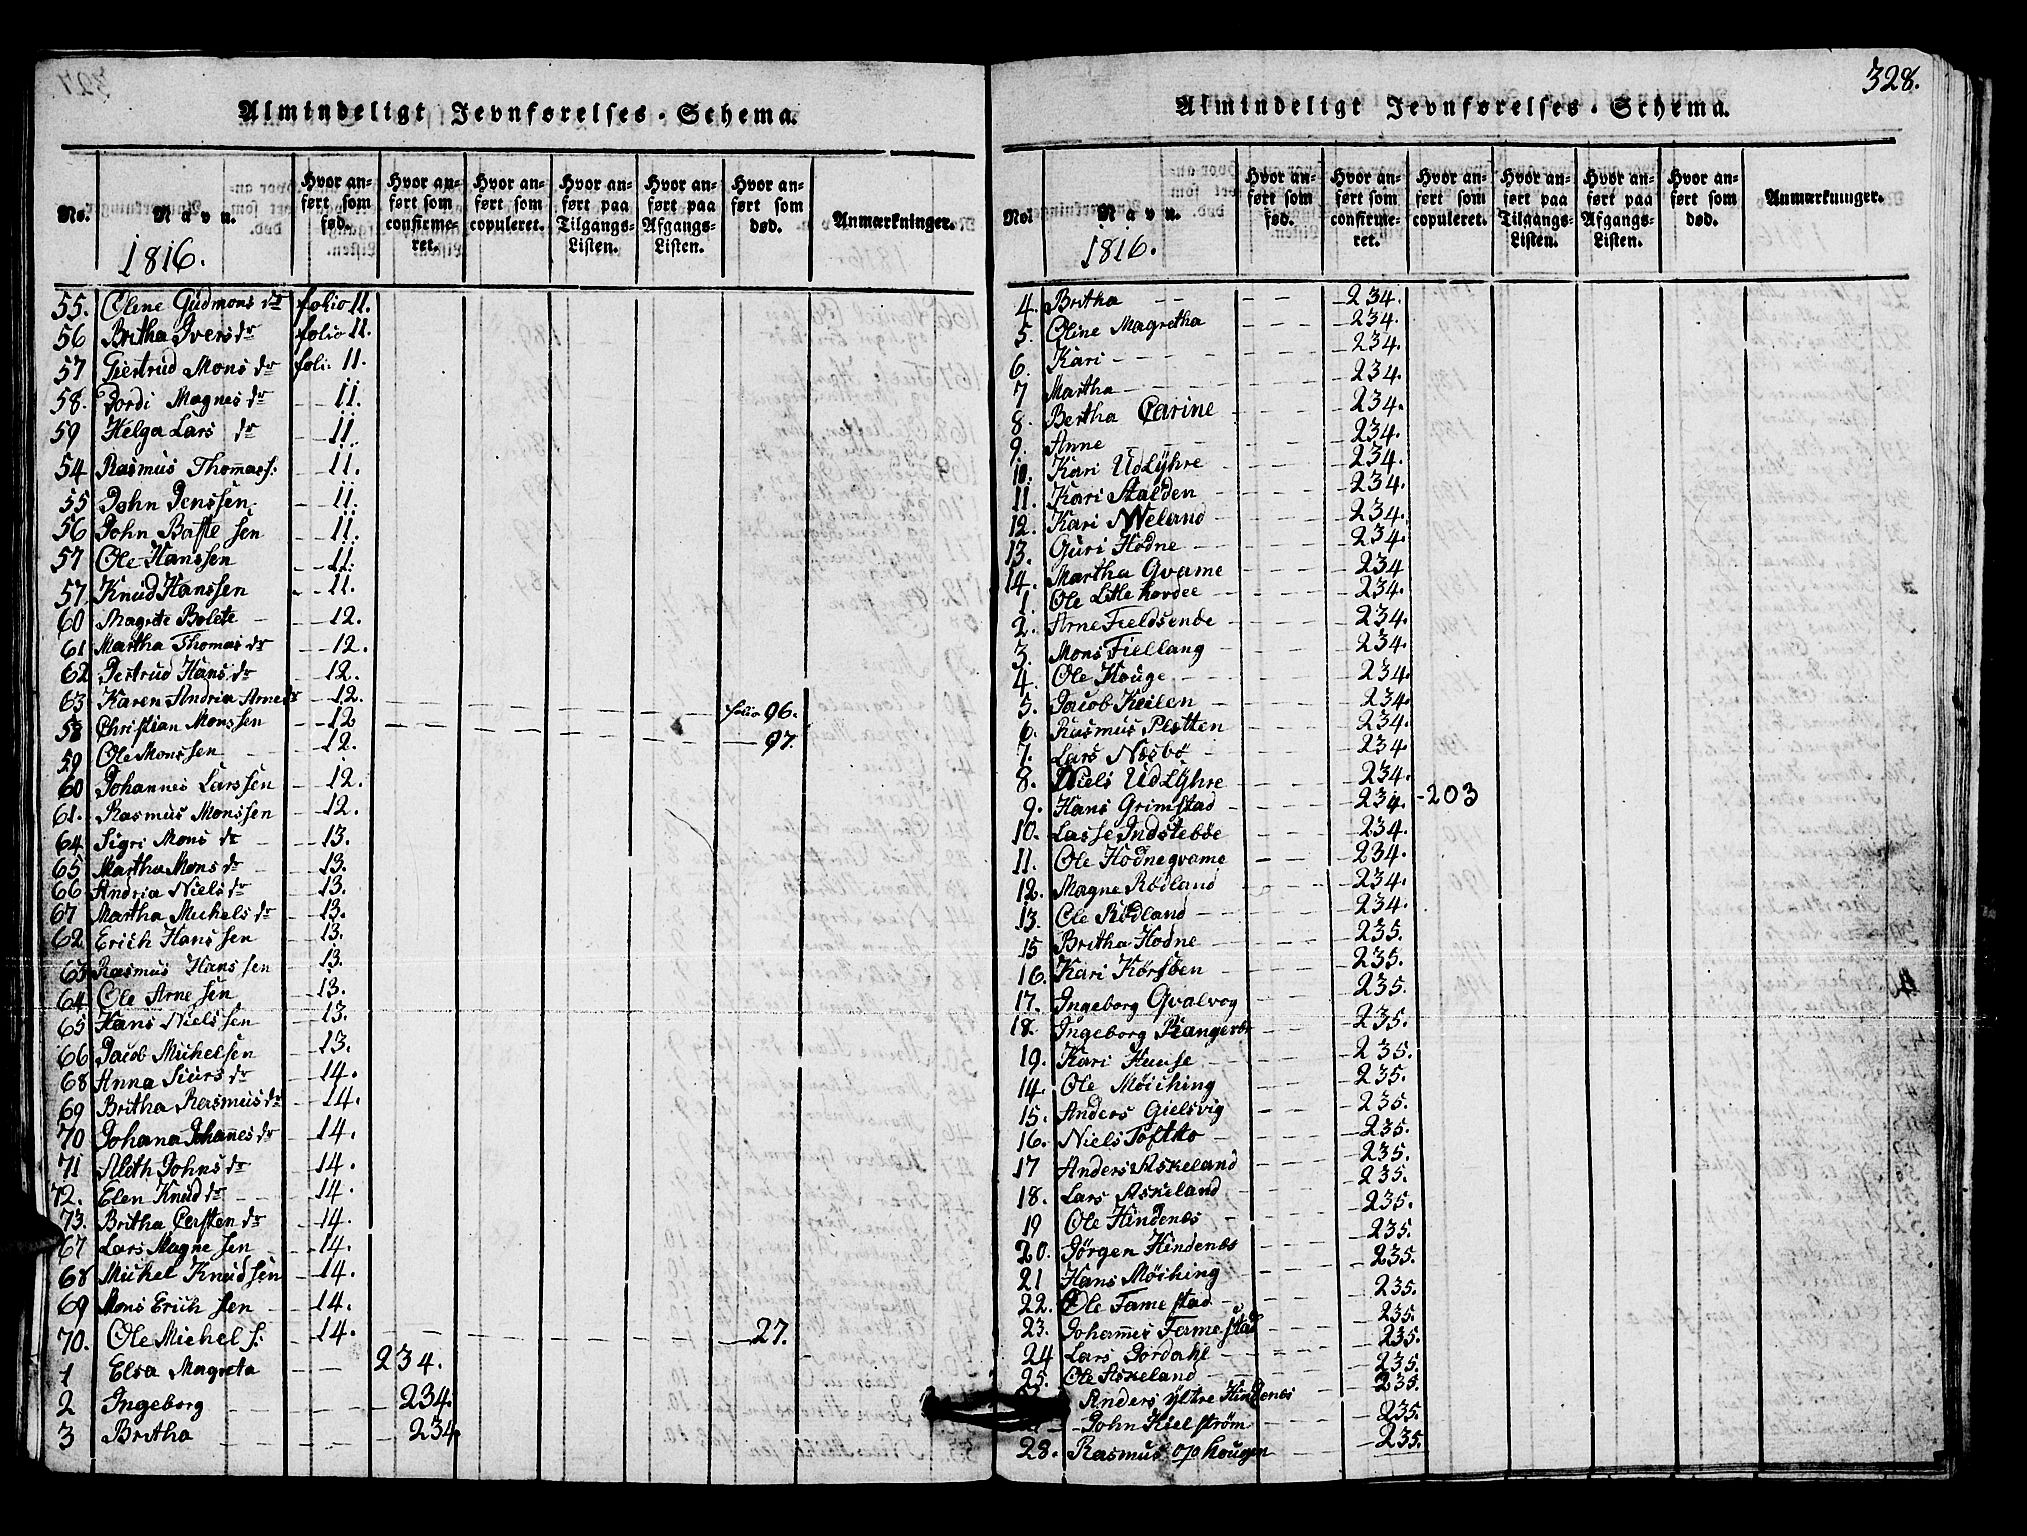 Almindeligt Jevnførelses-Schema.
No. Navn. Hvor anført som fød. Hvor anført som confirmeret. Hvor anført som copuleret. Hvor anført paa Tilgangs-Listen. Hvor anført paa Afgangs-Listen. Hvor anført som død. Anmærkninger.
1816.
55. Olene Gudmons dr folio 11.
56 Britha Ivers dr folio 11.
57 Giertrud Mons dr foli. 11.
58. Jordi Magnes dr 11.
59 Helga Lars dr 11.
54 Rasmus Thomass. 11.
55 John Jenssen 11.
56 John Baste sen 11.
57 Ole Hanssen 11.
57. Knud Hanssen 11.
60 Magrete Bolete 12.
61 Martha Thomas dr 12.
62 Gertrud Hans dr 12.
63 Karen Andria Arne dr 12.
58 Christian Monssen 12 folio 96.
59 Ole Monssen 12. 97.
60 Johannes Larssen 12.
61. Rasmus Monssen 12.
64 Sigri Mons dr 13.
65 Martha Mons dr 13.
66 Andria Niels dr 13.
67 Martha Michels dr 13.
62 Erich Hans sen 13.
63 Rasmus Hans sen 13.
64 Ole Arne sen 13.
65 Hans Niels sen 13.
66 Jacob Mickelsen 13.
68 Anna Siurs dr 14.
69 Britha Rasmus dr 14.
70 Johana Johannes dr 14.
71 Aleth Johns dr 14.
72. Elen Knud dr 14.
73. Britha Cersten dr 14.
67 Lars Magne sen 14.
68 Mickel Knud sen 14.
69 Mons Erich sen 14.
70. Ole Michel s. 14. 27.
1 Elsa Magreta 234.
2 Ingeborg 234.
3 Britha 234.
328.
Almindeligt Jevnførelses-Schema.
No. Navn. Hvor anført som fød. Hvor anført som confirmeret. Hvor anført som copuleret. Hvor anført paa Tilgangs-Listen. Hvor anført paa Afgangs-Listen. Hvor anført som død. Anmærkninger.
1816.
4. Britha 234.
5. Oline Magretha 234.
6. Kari 234.
7 Martha 234.
8. Bertha Carine 234.
9. Anne 234.
10. Kari Udlyhre 234.
11. Kari Stalden 234.
12. Kari Weland 234.
13. Guri Hodne 234.
14. Martha Qvame 234
1. Ole Litle 234.
2. Arne Fieldsende 234.
3. Mons Fiellang 234.
4. Ole Houge 234.
5. Jacob Keilen 234.
6. Rasmus Pletten 234.
7. Lars Næsbø 234
8. Niels Udlyhre 234.
9. Hans Grimstad 234. 203
10. Lasse Indstebøe 234.
11. Ole Hodneqvame 234.
12. Magne Rødland 234.
13. Ole Rødland 234.
15 Britha Hodne 235.
16. Kari Kørsøen 235.
17. Ingeborg Qvalvog 235.
18. Ingeborg 235.
19. Kari Huuse 235.
14. Ole Møiching 235.
15. Anders Gielsvig 235.
16. Niels Toftto 235.
17 Anders Askeland 235.
18. Lars Askeland 235.
19 Ole Hindenes 235.
20. Jørgen Hindenes 235.
21 Hans Møiching 235.
22. Ole Famestad 235.
23. Johannes Fame stad 235.
24 Lars Jordahl 235.
25. Ole Askeland 235.
Anders Yttre Hindenes 235.
John Kielstrøm 235.
28. Rasmus opo hougen 235.